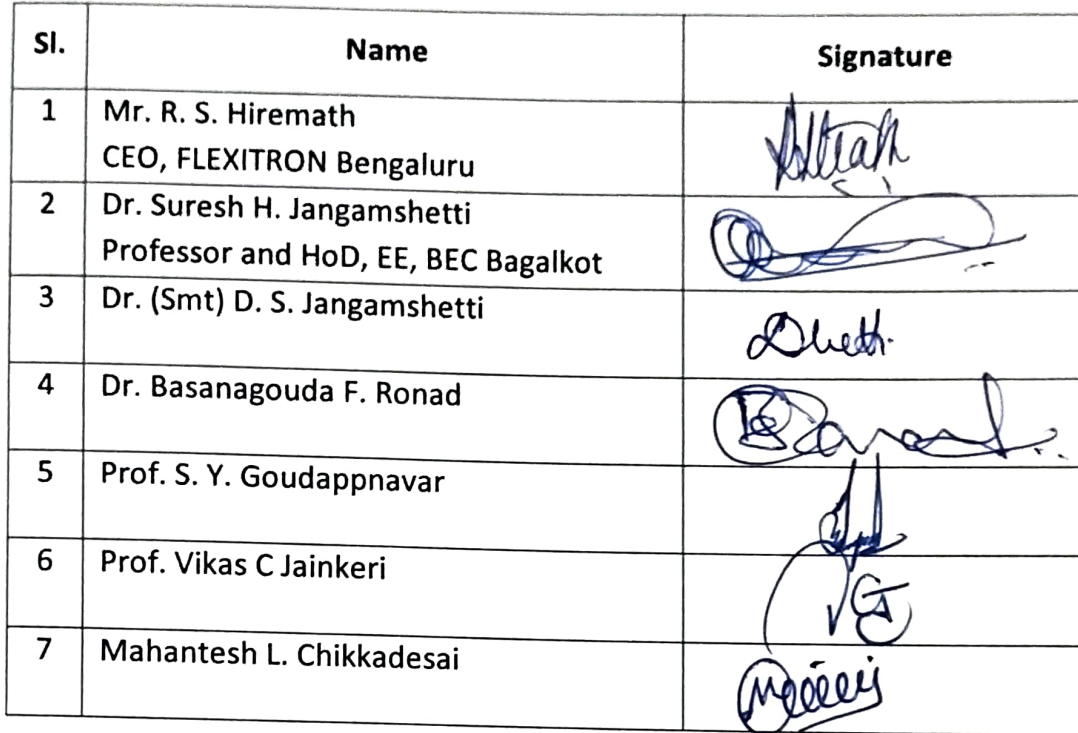 Sl. Name Signature
1 Mr. R. S. Hiremath
CEO, FLEXITRON Bengaluru
2 Dr. Suresh H. Jangamshetti
Professor and HoD, EE, BEC Bagalkot
3 Dr. (Smt) D. S. Jangamshetti
4 Dr. Basanagouda F. Ronad
5 Prof. S. Y. Goudappnavar
6 Prof. Vikas C Jainkeri
7 Mahantesh L. Chikkadesai